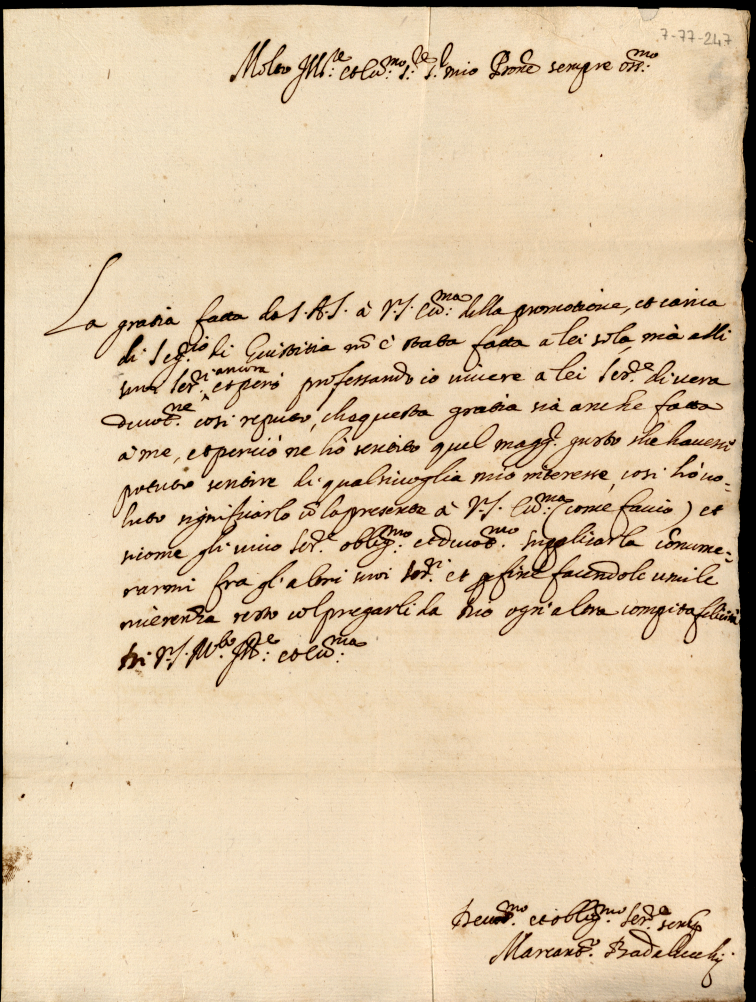 7-77-247
Molto Ill.re et Ecc.mo S.re S.r mio P.rone sempre oss.mo
La gratia fatta da S.A.S. à V.S. Ecc.ma della promotione, et carica
di Seg.rio di Giustitia nõ è stata fatta a lei sola mà alli
suoi Ser.ri ancora, et però professando io vivere a lei Ser.re di vera
devot.ne cosi reputo, che questa gratia sia anche fatta
à me, et perciò ne hò sentito quel magg.r gusto che havessi
potuto sentire di qualsivoglia mio interesse, cosi hò vo-
luto significarlo cõ la presente à V.S. Ecc.ma (come faccio) et
sicome gli vivo Ser.re oblig.mo et devot.mo supplicarla cõnume-
rarmi fra gl'altri suoi Ser.ri et p fine facendole humile
riverenza resto col pregarli da Dio ogni altra compita felicità
Di V.S. M.to Ill.re et Ecc.ma
Devot.mo et oblig.mo Ser.re semp.
Marcant.o Badalucchi